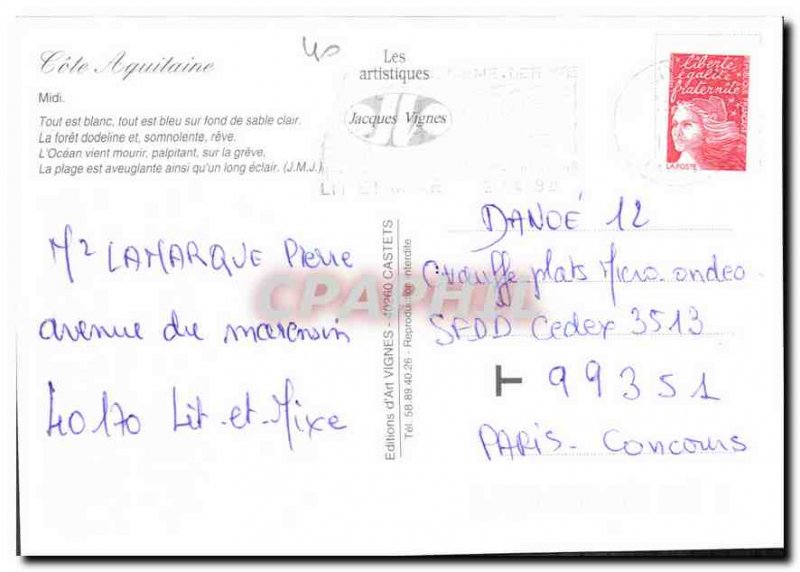 Côte Aquitaine
Midi.
Tout est blanc, tout est bleu sur fond de sable clair.
La forêt dodeline et, somnolente, rêve.
L'Océan vient mourir, palpitant, sur la grève.
La plage est aveuglante ainsi qu'un long éclair. (J.M.J.)
Les
artistiques
Jacques Vignes
liberté
égalité
fraternité
LA POSTE
Mr LAMARQUE Pierre
avenue du marensin
40170 Lit-et-Mixe
Editions d'Art VIGNES - 40260 CASTETS
Tél. 58.89.40.26 - Reproduction interdite
DANOÉ 12
Chauffe plats Micro-ondes
SEDD Cedex 3513
T 99351
PARIS - Concours
CPAPHIL